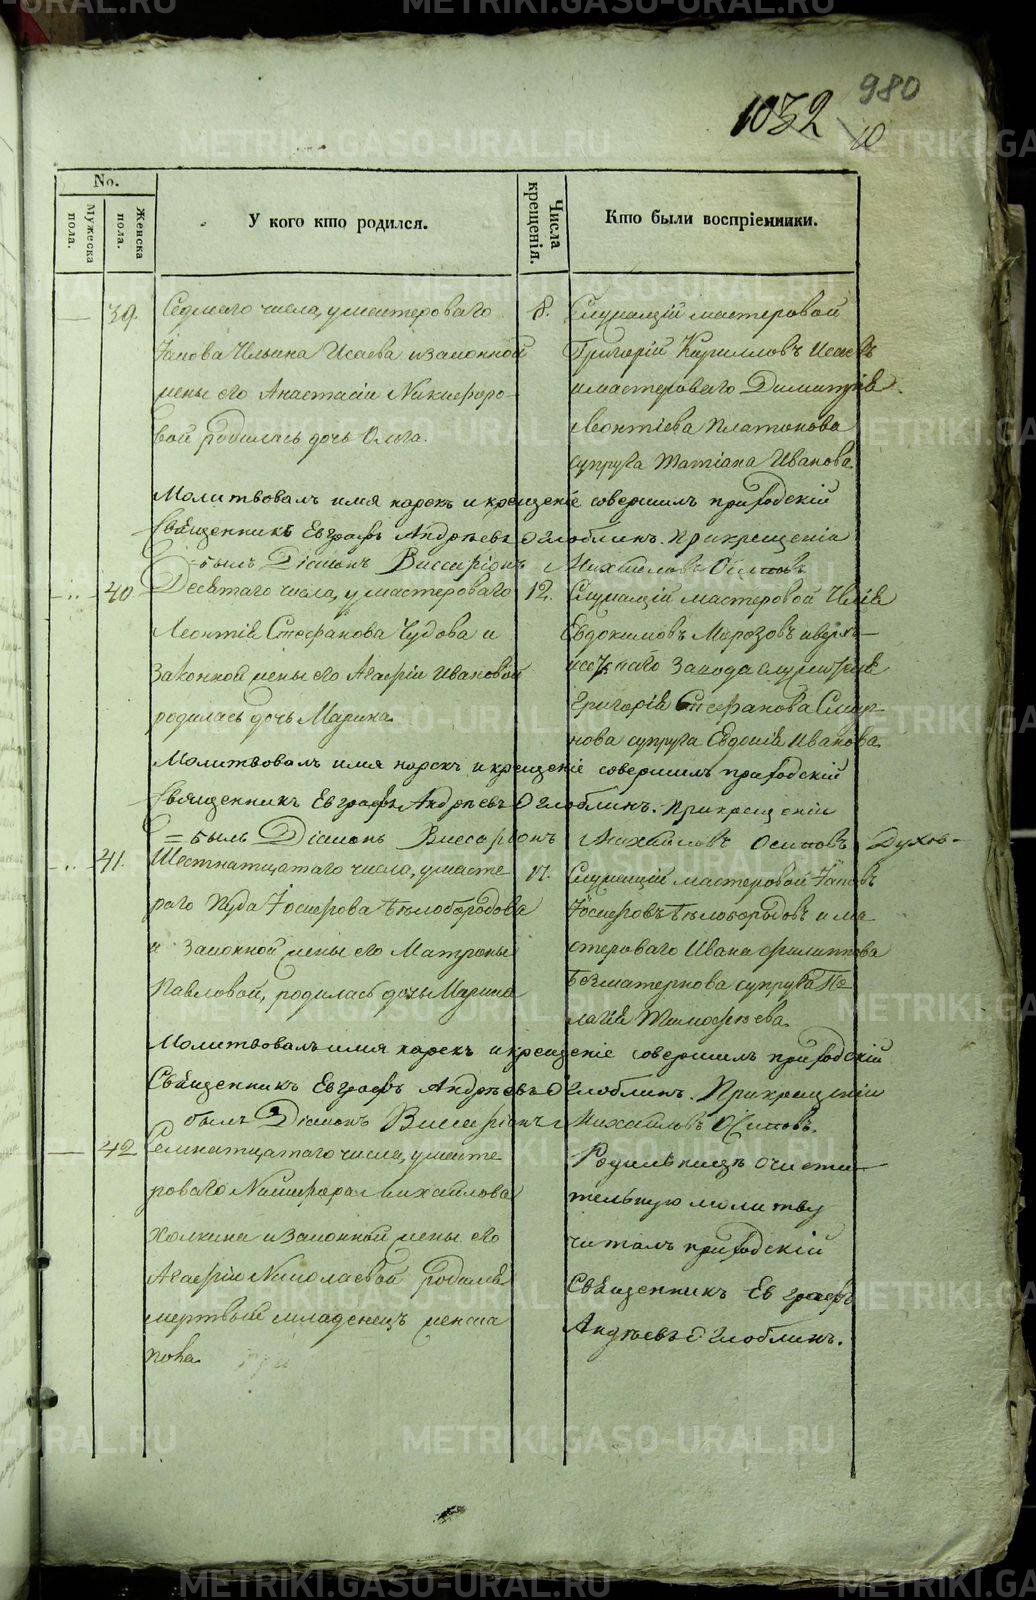 METRIKI.GASO-URAL.RU
980
1032
10
No.
Мужеска пола.
Женска пола.
У кого кто родился.
Числа крещенія.
Кто были воспріемники.
39.
Седмаго числа, у мастероваго
Іакова Ильина Исаева и законной
жены его Анастасіи Никифоро-
вой родилась дочь Ольга.
8.
Служащій мастеровой
Григорій Кирилловъ Исаевъ
и мастероваго Димитрія
Леонтіева Платонова
супруга Татіана Иванова.
Молитвовалъ имя нарекъ и крещеніе совершилъ приходскій
Священникъ Евграфъ Андреевъ Оглоблинъ. При крещеніи
былъ Діаконъ Виссаріонъ Михаиловъ Осиповъ
40
Десятаго числа, у мастероваго
Леонтія Стефанова Чудова и
законной жены его Агафіи Ивановой
родилась дочь Марина.
12.
Служащій мастеровой Илія
Евдокимовъ Морозовъ и верхъ-
исетскаго завода служителя
Григорія Стефанова Смир-
нова супруга Евдокія Иванова.
Молитвовалъ имя нарекъ и крещеніе совершилъ приходскій
Священникъ Евграфъ Андреевъ Оглоблинъ. При крещеніи
былъ Діаконъ Виссаріонъ Михаиловъ Осиповъ Духов-
41.
Шестнатцатаго числа, у масте
раго Іуда Іосифова Бѣлобородова
и законной жены его Матроны
Павловой, родилась дочь Марина
17.
Служащій мастеровой Іаковъ
Іосифовъ Бѣлобородовъ и ма-
стероваго Ивана Филиппова
Безматернова супруга Пе-
лагія Тимофѣева.
Молитвовалъ имя нарекъ и крещеніе совершилъ приходскій
Священникъ Евграфъ Андрѣевъ Оглоблинъ. При крещеніи
былъ Діаконъ Виссаріонъ Михаиловъ Осиповъ.
42
Семнатцатаго числа, у масте
роваго Никифора Михаилова
Холкина и законной жены его
Агафіи Николаевой родился
мертвый младенецъ женска
пола.
Родильницѣ очисти-
тельную молитву
читалъ приходскій
Священникъ Евграфъ
Андрѣевъ Оглоблинъ.